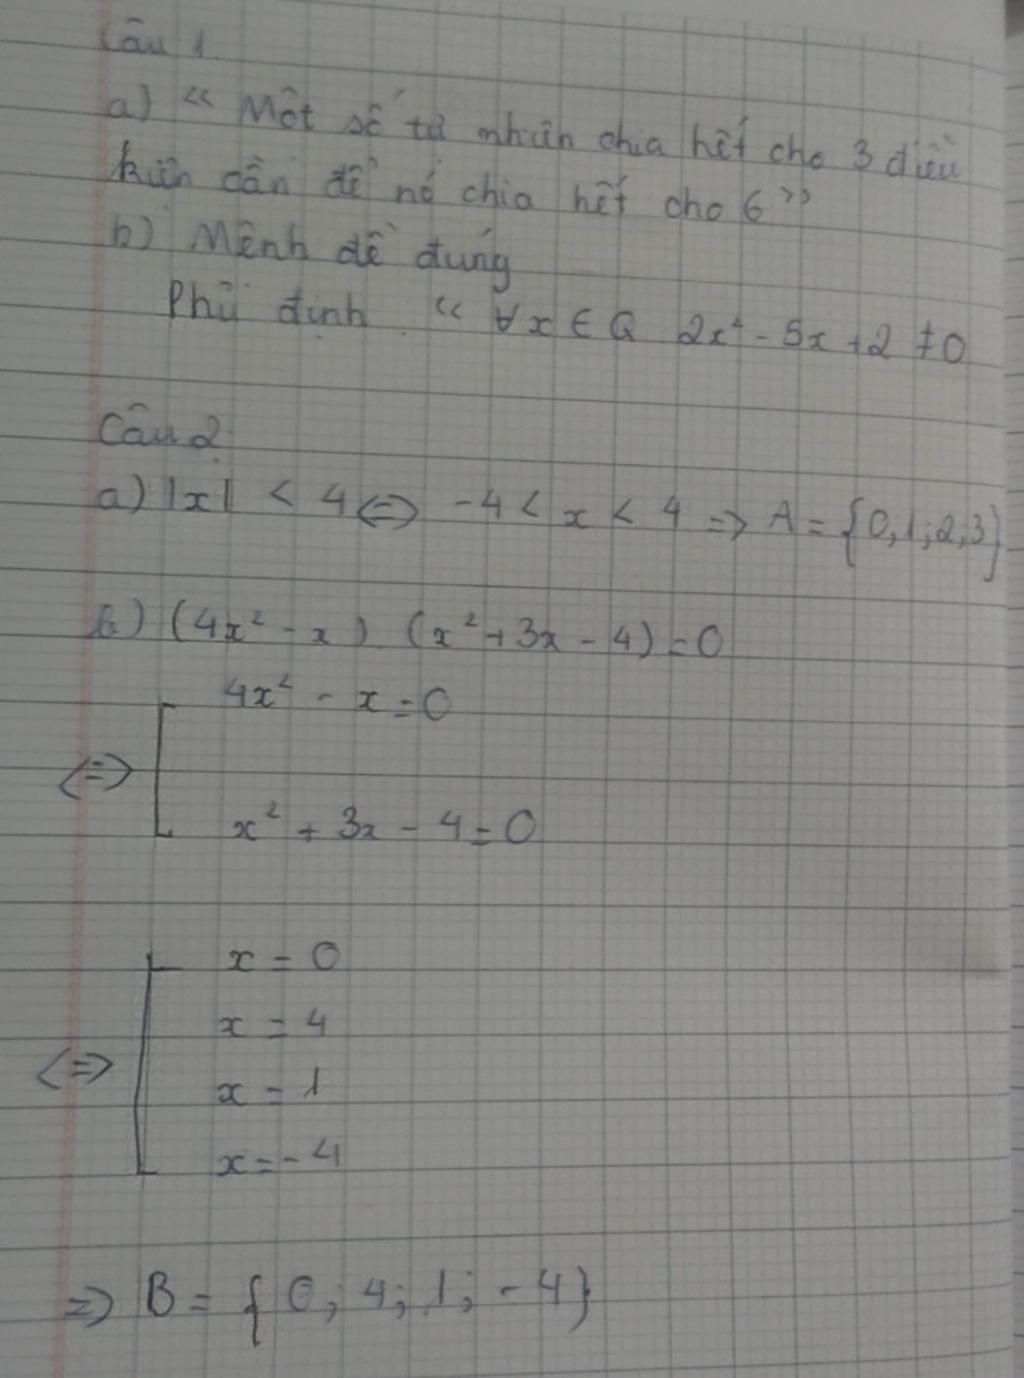 Câu 1
a) « Một số tự nhiên chia hết cho 3 điều
kiện cần để nó chia hết cho 6 »
b) Mệnh đề đúng
Phủ định « ∀x ∈ Q 2x² - 5x + 2 ≠ 0
Câu 2
a) |x| < 4 <=> -4 < x < 4 => A = {0, 1; 2; 3}
b) (4x² - x) (x² + 3x - 4) = 0
4x² - x = 0
<=>
x² + 3x - 4 = 0
x = 0
x = 4
<=>
x = 1
x = -4
=> B = {0; 4; 1; -4}